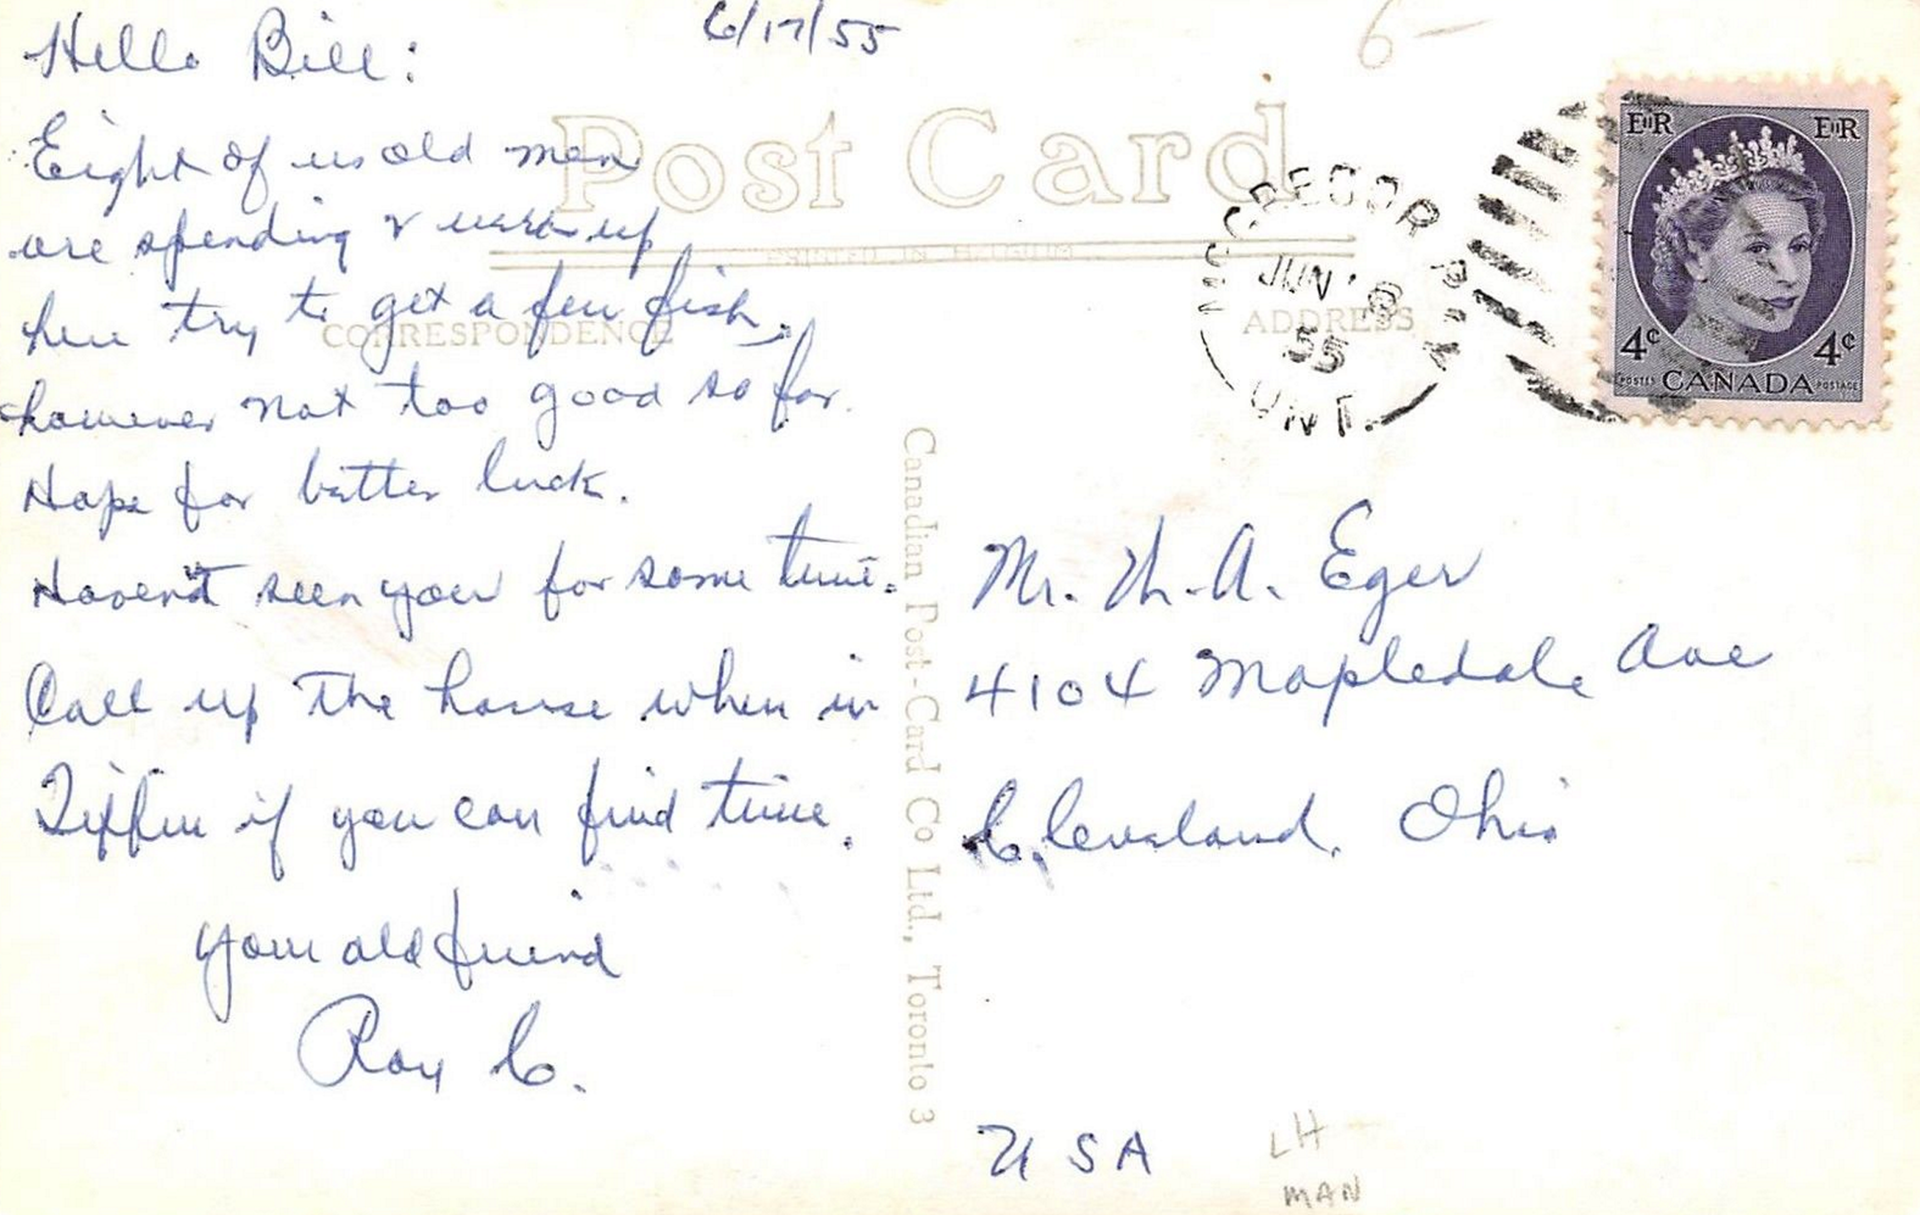 6/17/55
6-
Hello Bill:
Eight of us old men
are spending a week up
here try to get a few fish,
however not too good so far.
Hope for better luck.
Haven't seen you for some time.
Call up the house when in
Tiffin if you can find time.
Your old friend
Roy C.
Post Card
PRINTED IN BELGIUM
CORRESPONDENCE
ADDRESS
Canadian Post-Card Co Ltd., Toronto 3
McGREGOR BAY
JUN 18
55
ONT.
EIIR EIIR
4¢ 4¢
POSTES CANADA POSTAGE
Mr. A. Eger
4104 Mapledale Ave
Cleveland, Ohio
USA
LH
MAN